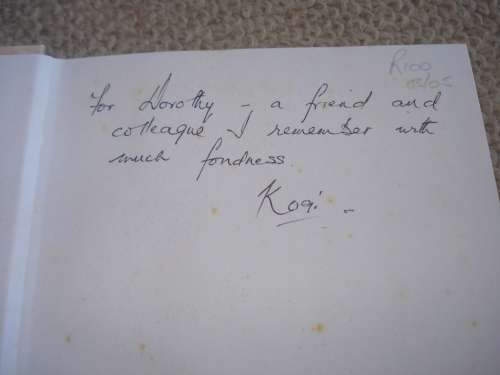 R100
03/05
For Dorothy - a friend and
colleague I remember with
much fondness.
Kogi -